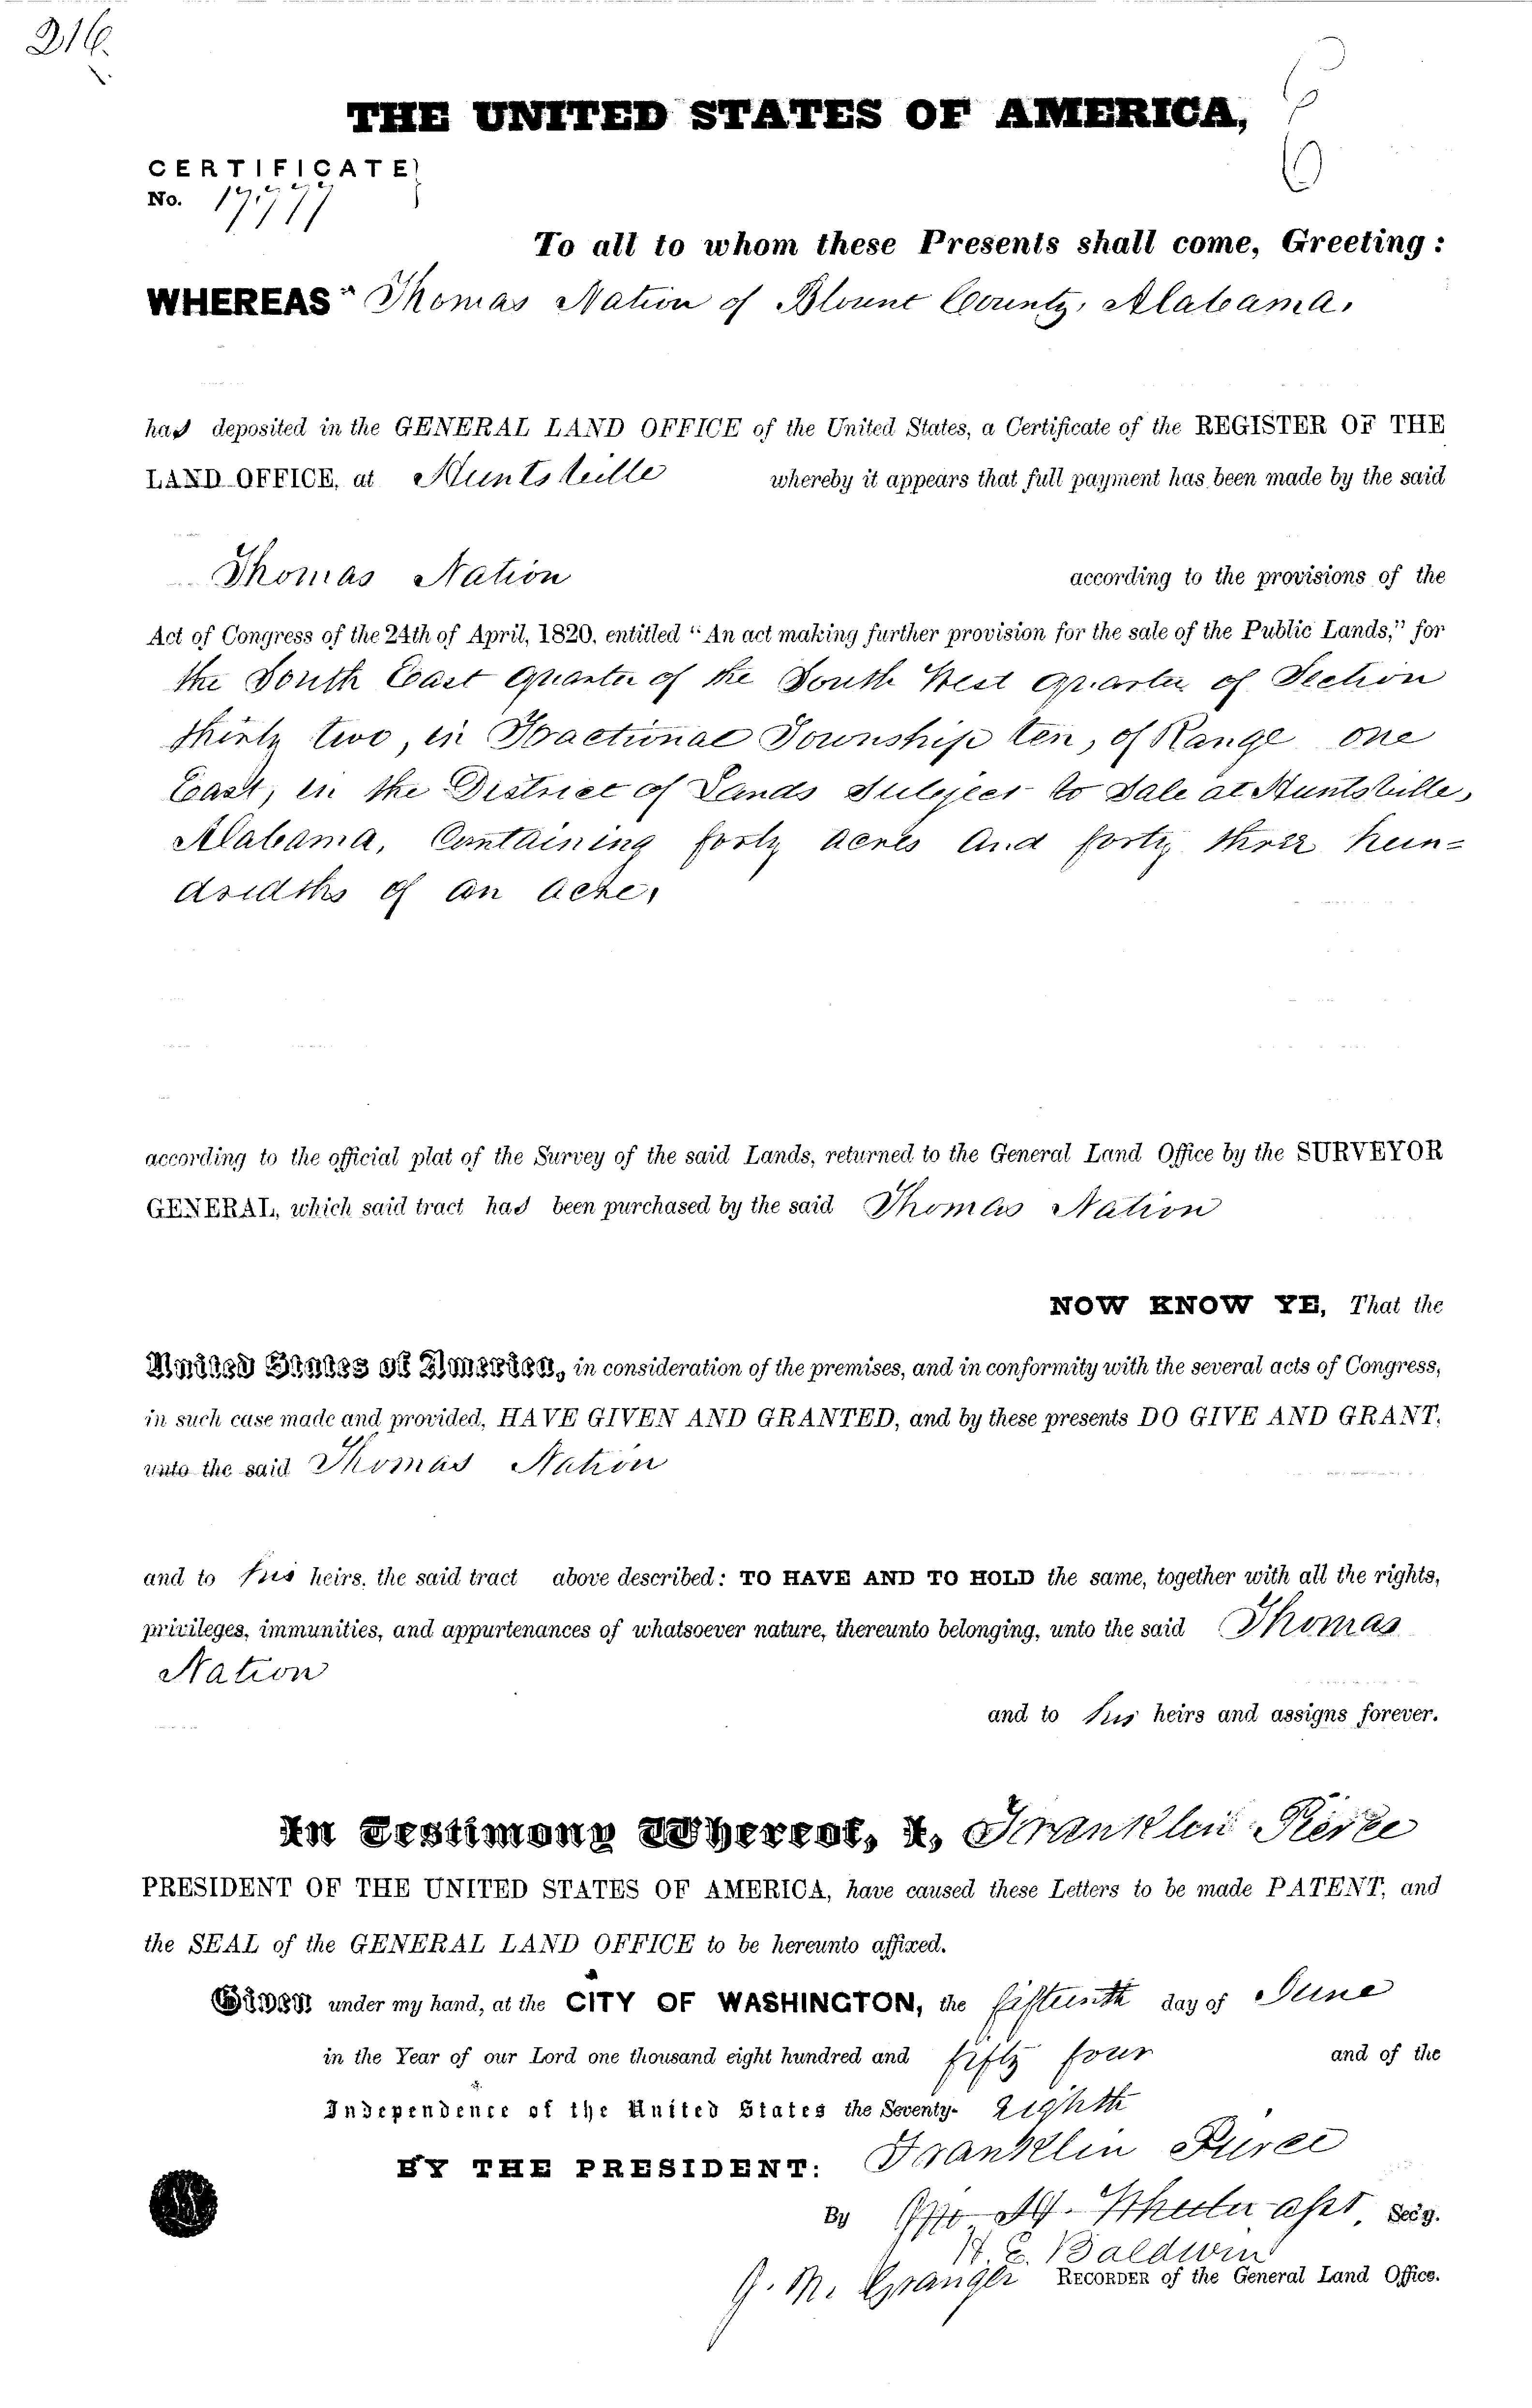 216.
THE UNITED STATES OF AMERICA,
CERTIFICATE
No. 17777
To all to whom these Presents shall come, Greeting:
WHEREAS Thomas Nation of Blount County, Alabama.
has deposited in the GENERAL LAND OFFICE of the United States, a Certificate of the REGISTER OF THE
LAND OFFICE, at Huntsville whereby it appears that full payment has been made by the said
Thomas Nation according to the provisions of the
Act of Congress of the 24th of April, 1820, entitled "An act making further provision for the sale of the Public Lands," for
the South East quarter of the South West quarter of Section
thirty two, in Fractional Township ten, of Range one
East, in the District of Lands Subject to Sale at Huntsville,
Alabama, Containing forty acres and forty three hun=
dredths of an acre,
according to the official plat of the Survey of the said Lands, returned to the General Land Office by the SURVEYOR
GENERAL, which said tract has been purchased by the said Thomas Nation
NOW KNOW YE, That the
United States of America, in consideration of the premises, and in conformity with the several acts of Congress,
in such case made and provided, HAVE GIVEN AND GRANTED, and by these presents DO GIVE AND GRANT,
unto the said Thomas Nation
and to his heirs, the said tract above described: TO HAVE AND TO HOLD the same, together with all the rights,
privileges, immunities, and appurtenances of whatsoever nature, thereunto belonging, unto the said Thomas
Nation
and to his heirs and assigns forever.
In Testimony Whereof, I, Franklin Pierce
PRESIDENT OF THE UNITED STATES OF AMERICA, have caused these Letters to be made PATENT, and
the SEAL of the GENERAL LAND OFFICE to be hereunto affixed.
Given under my hand, at the CITY OF WASHINGTON, the fifteenth day of June
in the Year of our Lord one thousand eight hundred and fifty four and of the
Independence of the United States the Seventy- eighth
BY THE PRESIDENT: Franklin Pierce
By Wheeler asst Sec'y.
H. E. Baldwin
J. N. Granger RECORDER of the General Land Office.